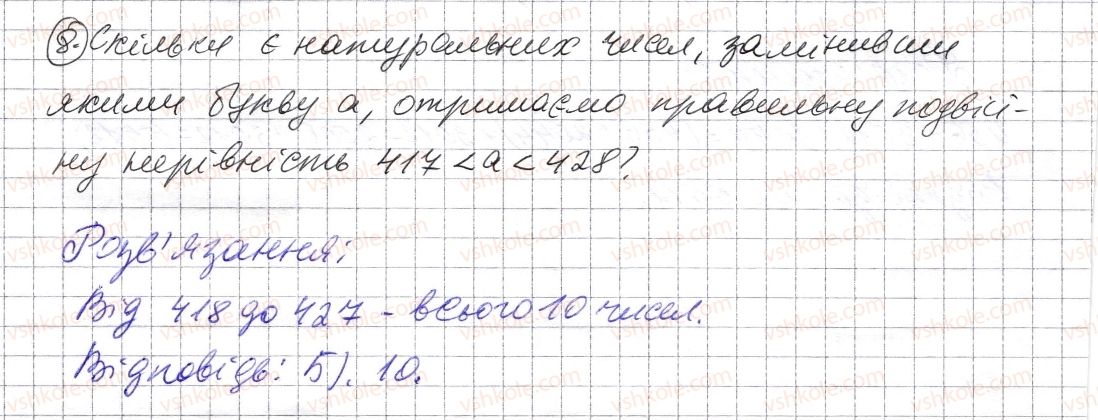 8. Скільки є натуральних чисел, замінивши
якими букву а, отримаємо правильну подвій-
ну нерівність 417 < а < 428?
Розв'язання:
Від 418 до 427 - всього 10 чисел.
Відповідь: Б). 10.